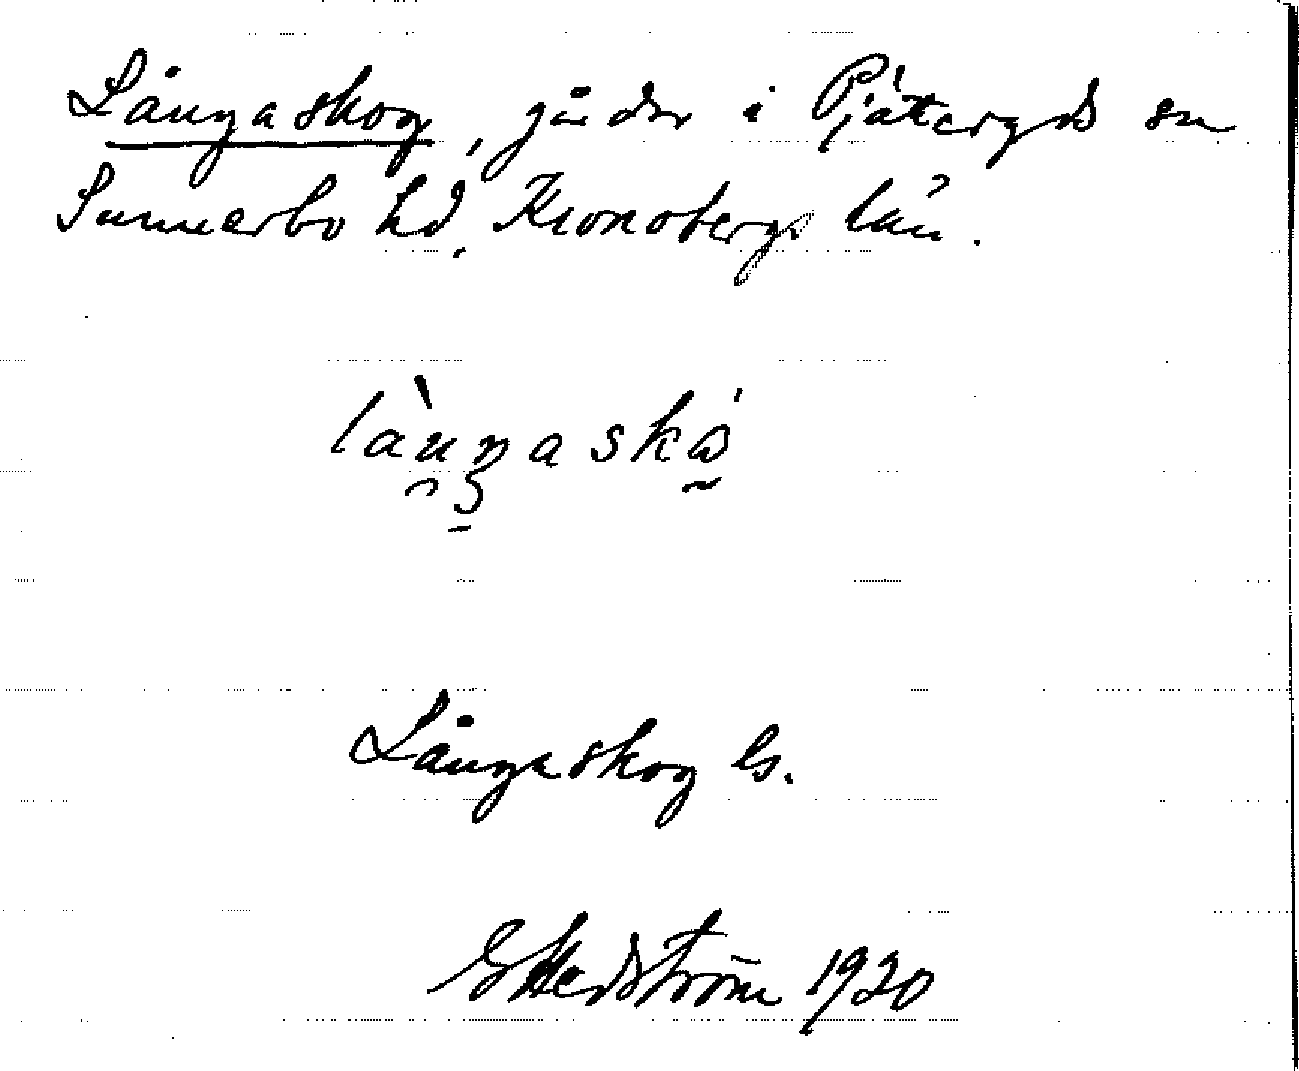 Långaskog, gårdar i Pjätteryds sn
Sunnerbo hd, Kronobergs län.
Långaskog Gs.
G Hedström 1920